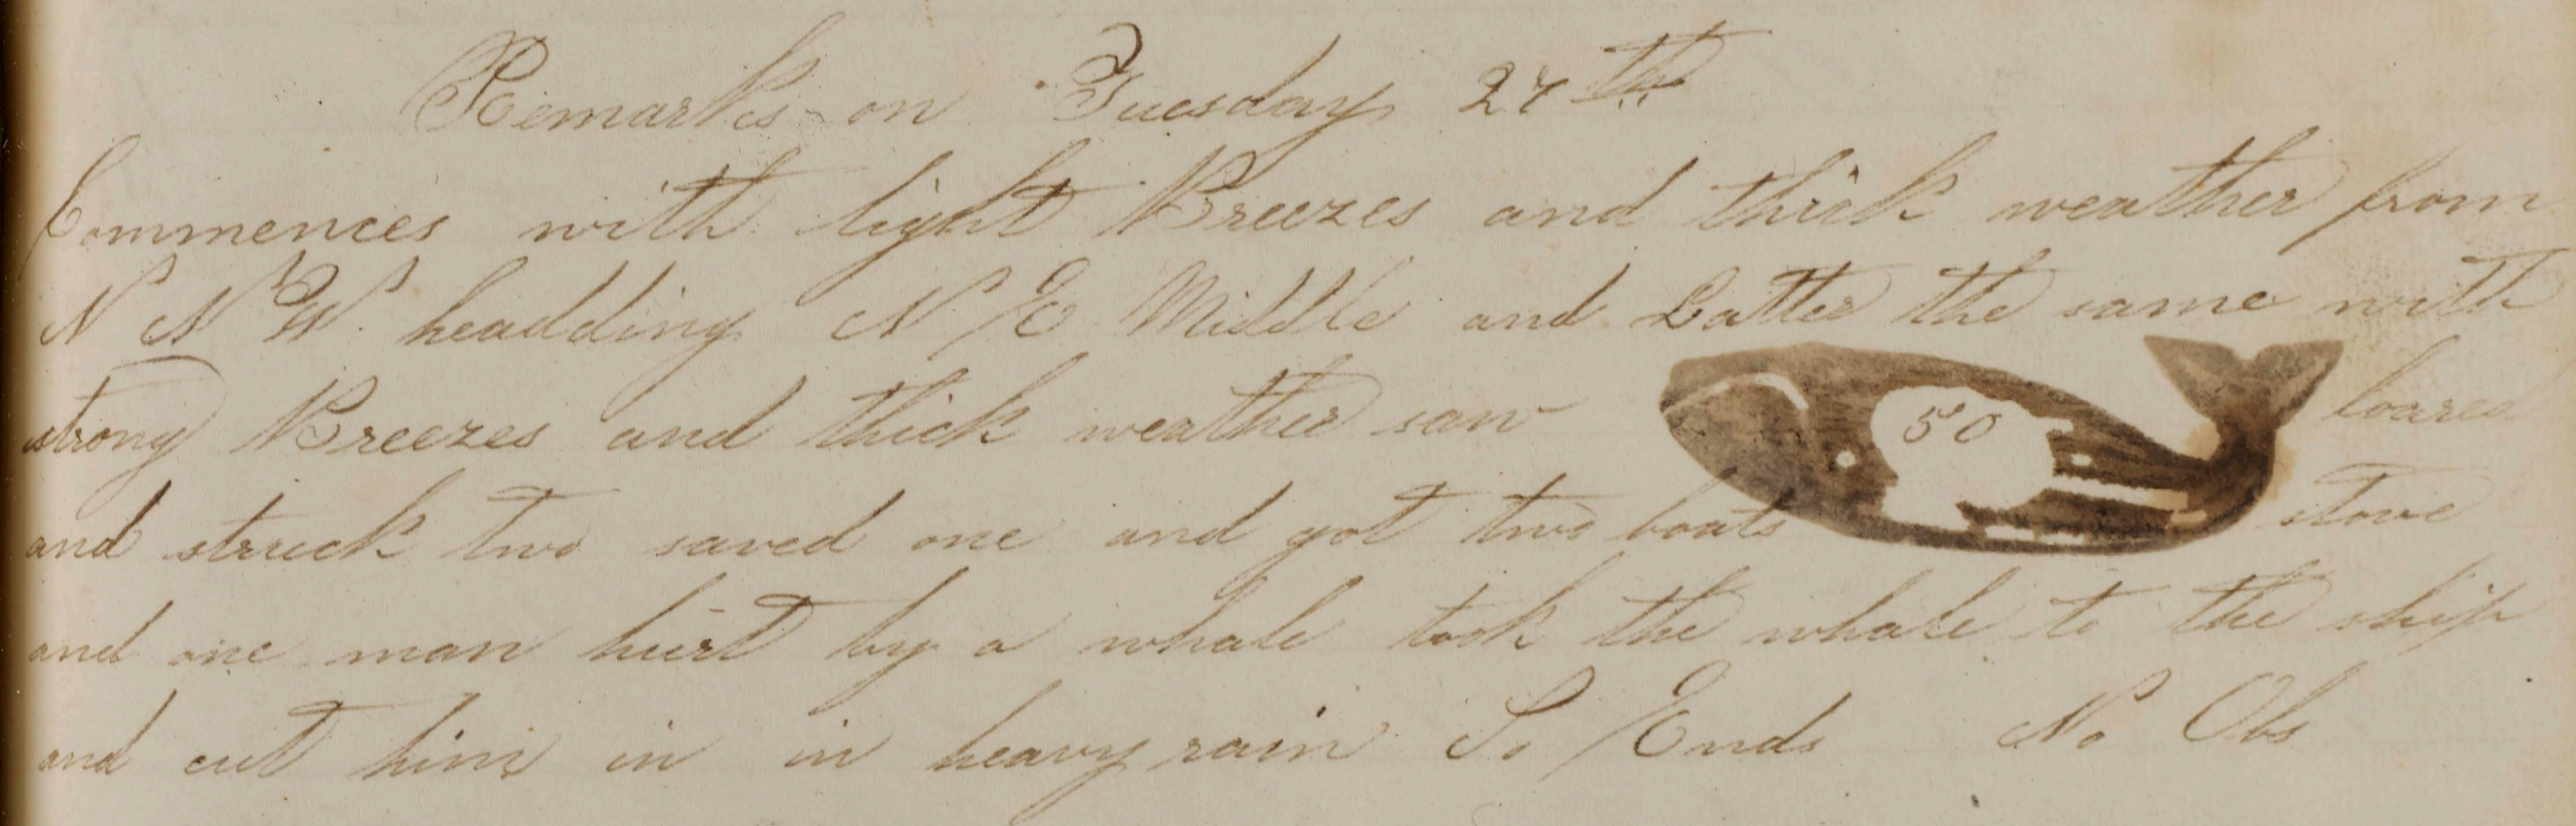 Remarks on Tuesday 27th
Commences with light Breezes and thick weather from
N N W headding N E Middle and Latter the same with
strong Breezes and thick weather saw 50 loared
and struck two saved one and got two boats stove
and one man hurt by a whale took the whale to the ship
and cut him in in heavy rain So Ends No Obs